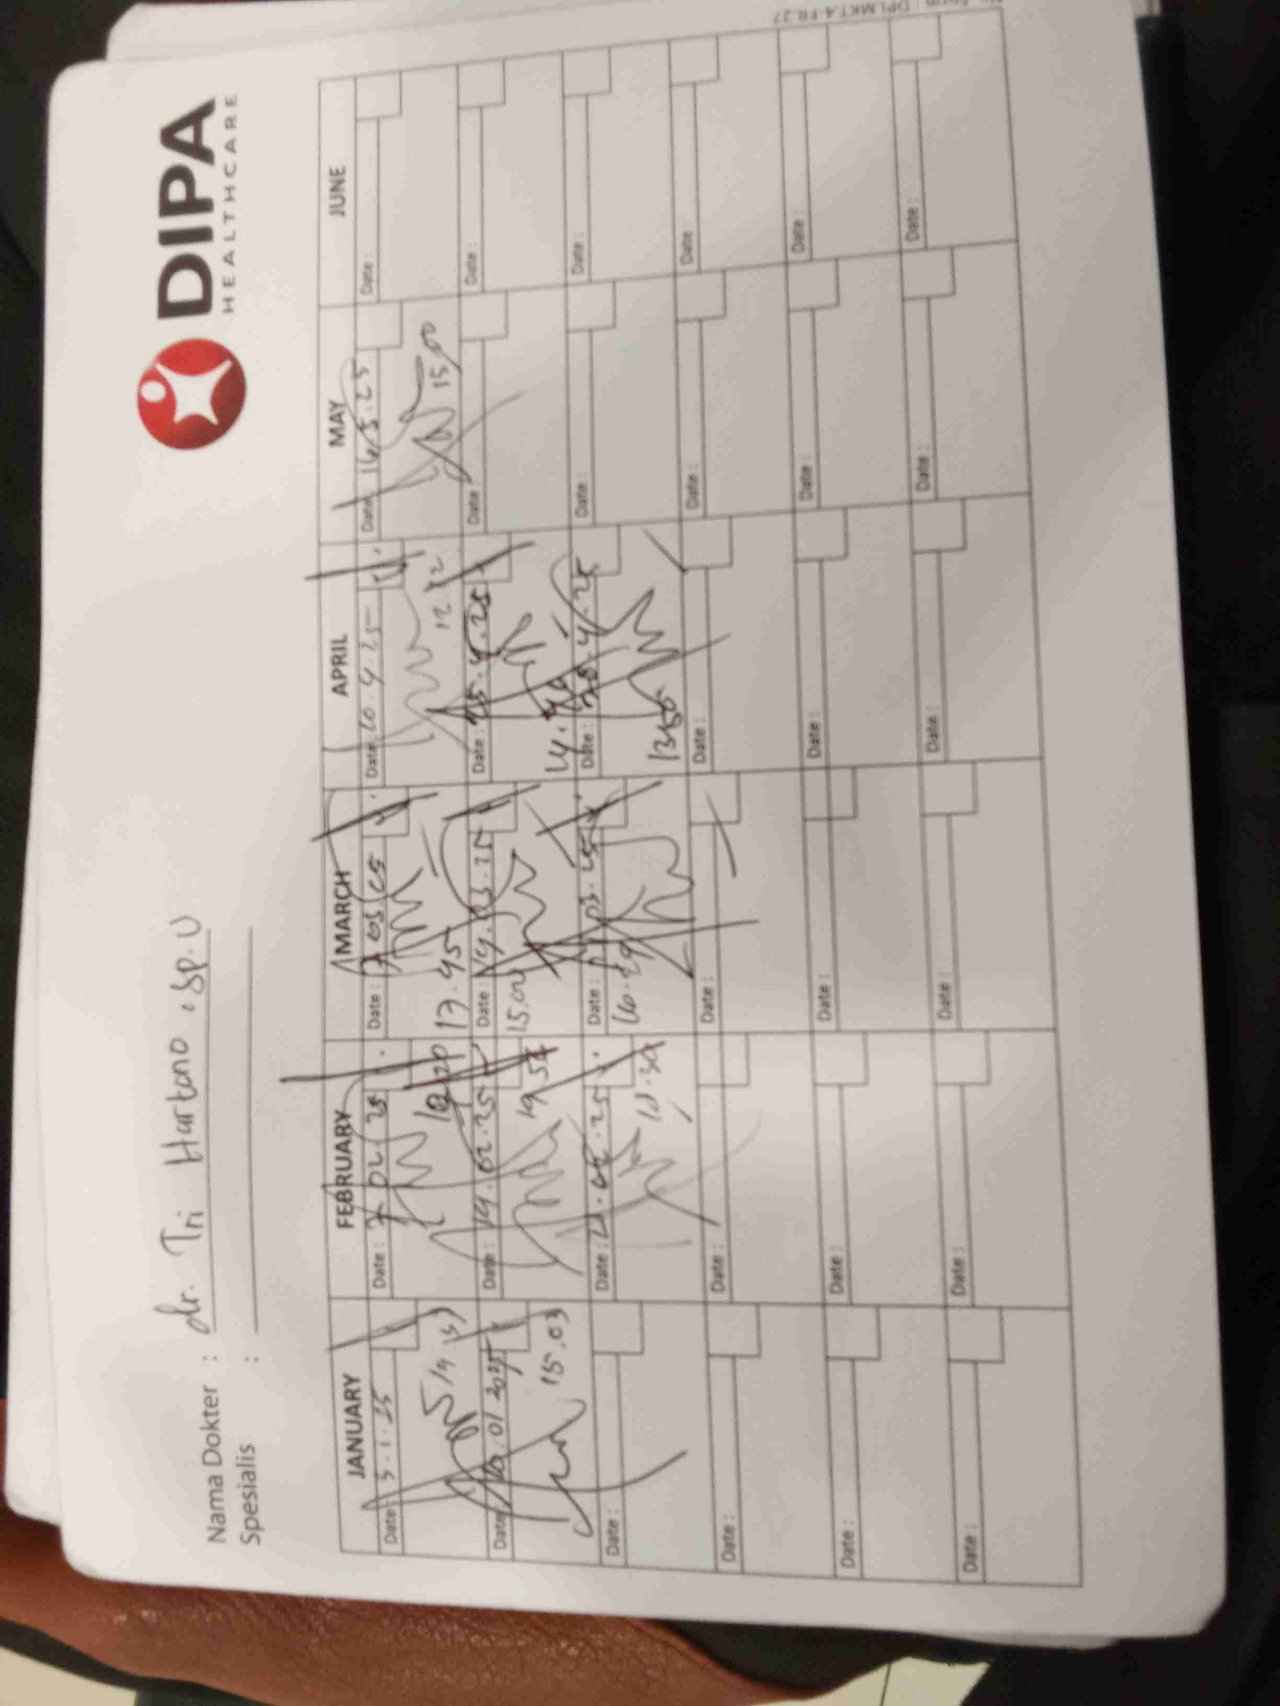 DIPA
HEALTHCARE
Nama Dokter : dr. Tri Hartono, Sp.U
Spesialis :
JANUARY FEBRUARY MARCH APRIL MAY JUNE
Date: 3.1.25 Date: 7 02 25 Date: 7 03 25 Date: 10.4.25 Date: 16.5.25 Date:
17.45 12 12 15.00
Date: 10.01 2025 Date: 14 02.25 Date: 14.03.25 Date: 15.4.25 Date: Date:
15.03 19 54 15.02
Date: Date: Date: 03.25 Date: 4.25 Date: Date:
16.29 1350
Date: Date: Date: Date: Date: Date:
Date: Date: Date: Date: Date: Date:
Date: Date: Date: Date: Date: Date:
DPI.MKT.4-FR.27